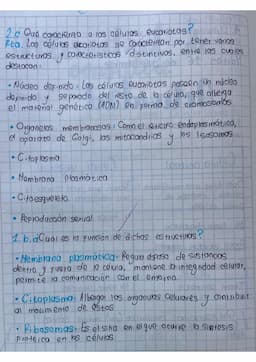 2.c Que caracteriza a las células eucariotas?
Rta. Las células eucariotas se caracterizan por tener varias
estructuras y características distintivas, entre las cuales
destacan:
• Núcleo definido: Las células eucariotas poseen un núcleo
definido y separado del resto de la célula, que alberga
el material genético (ADN) en forma de cromosomas
• Organelos membranosos: Como el retículo endoplasmático,
el aparato de Golgi, las mitocondrias y los lisosomas
• Citoplasma
• Membrana Plasmática
• Citoesqueleto
• Reproducción sexual
1.b.a Cual es la función de dichas estructuras?
• Membrana plasmática: Regula el paso de sustancias
dentro y fuera de la célula, mantiene la integridad celular,
permite la comunicación con el entorno
• Citoplasma: Alberga los organelos celulares y contribuye
al movimiento de estos
• Ribosomas: Es el sitio en el que ocurre la síntesis
proteica en las células